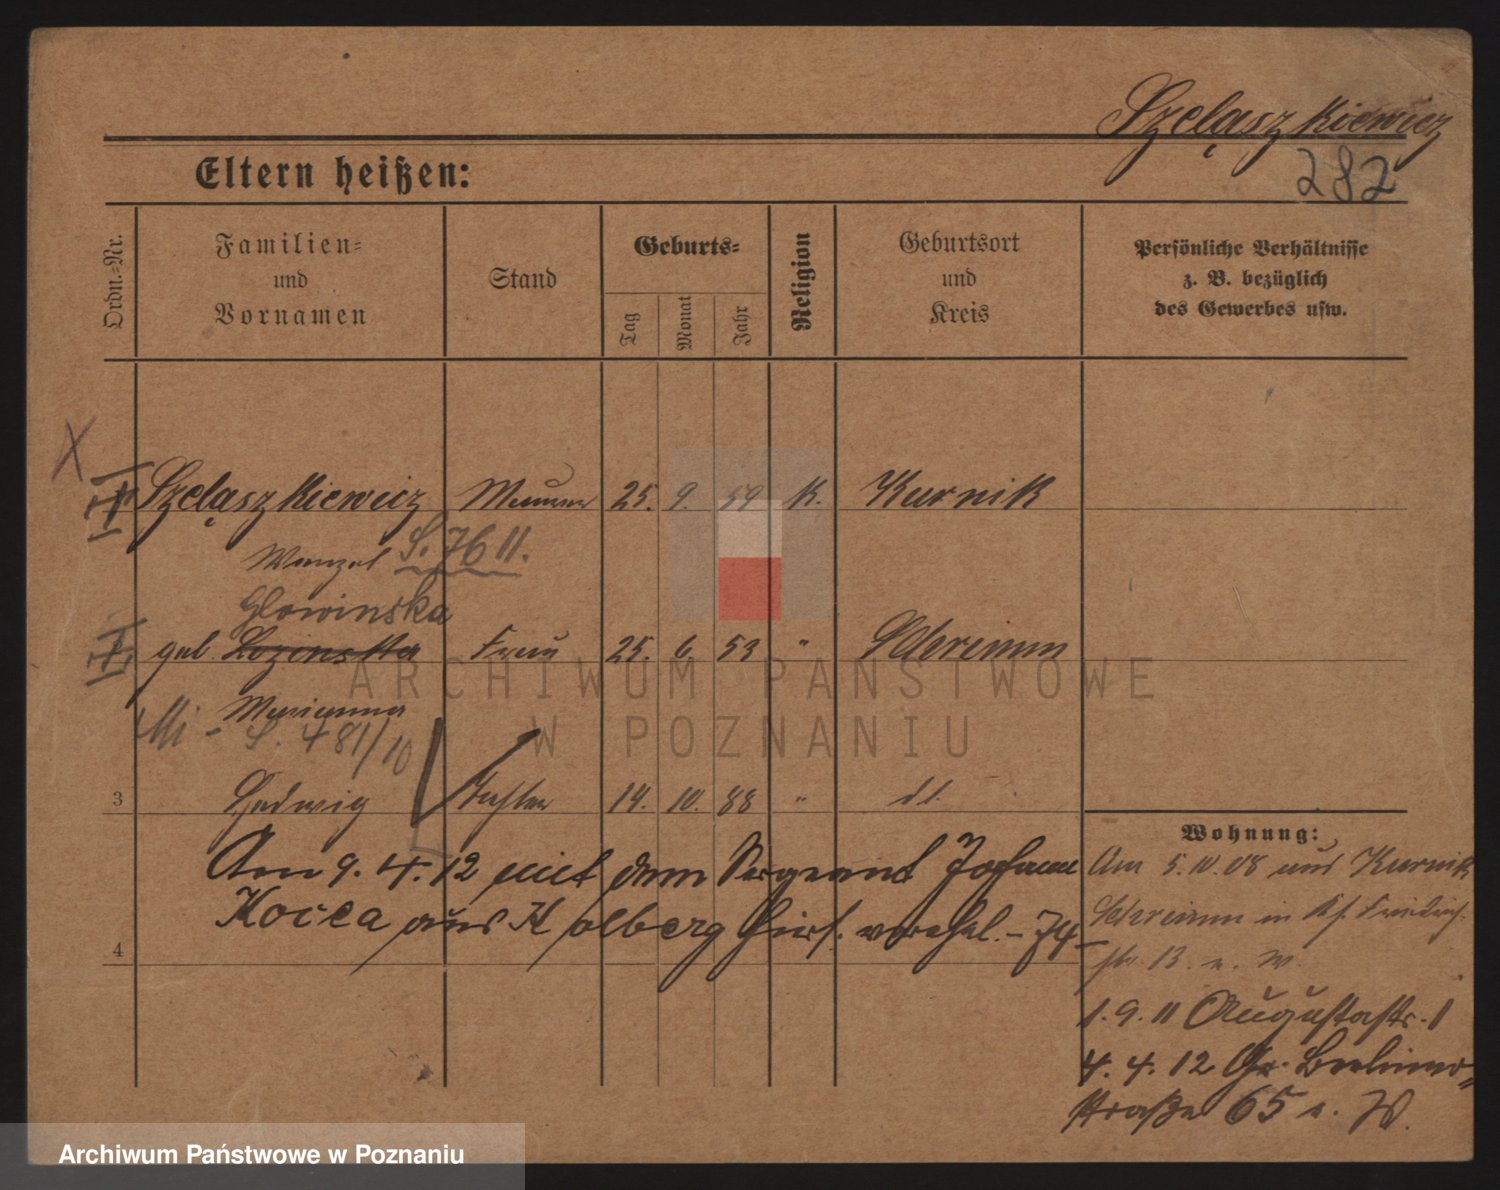 Szeląszkiewicz
282
Eltern heißen:
Ordn.-Nr.
Familien-
und
Vornamen
Stand
Geburts-
Tag
Monat
Jahr
Religion
Geburtsort
und
Kreis
Persönliche Verhältnisse
z. B. bezüglich
des Gewerbes usw.
Szeląszkiewicz Maurer 25. 9. 59 k. Kurnik
Wenzel
Glowinska
geb. Lozinska Frau 25. 6. 53 " Schrimm
Marianna
S. 481/10
3 Hedwig Tochter 14. 10. 88 " dt.
Am 9. 4. 12 mit dem Sergeant Johann
Kocea aus Kolberg hier verehel.
4
Wohnung:
Am 5. 10. 08 aus Kurnik
Schrimm in
str. 13. e. W.
1. 9. 11 Augustastr. 1
4. 4. 12 Gr. Berliner-
straße 65 e. W.
ARCHIWUM PAŃSTWOWE
W POZNANIU
Archiwum Państwowe w Poznaniu